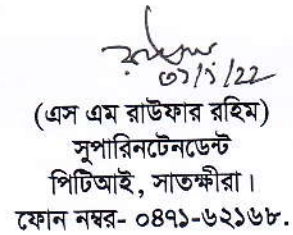 (এস এম রাউফার রহিম)
সুপারিনটেনডেন্ট
পিটিআই, সাতক্ষীরা।
ফোন নম্বর- ০৪৭১-৬২১৬৮.